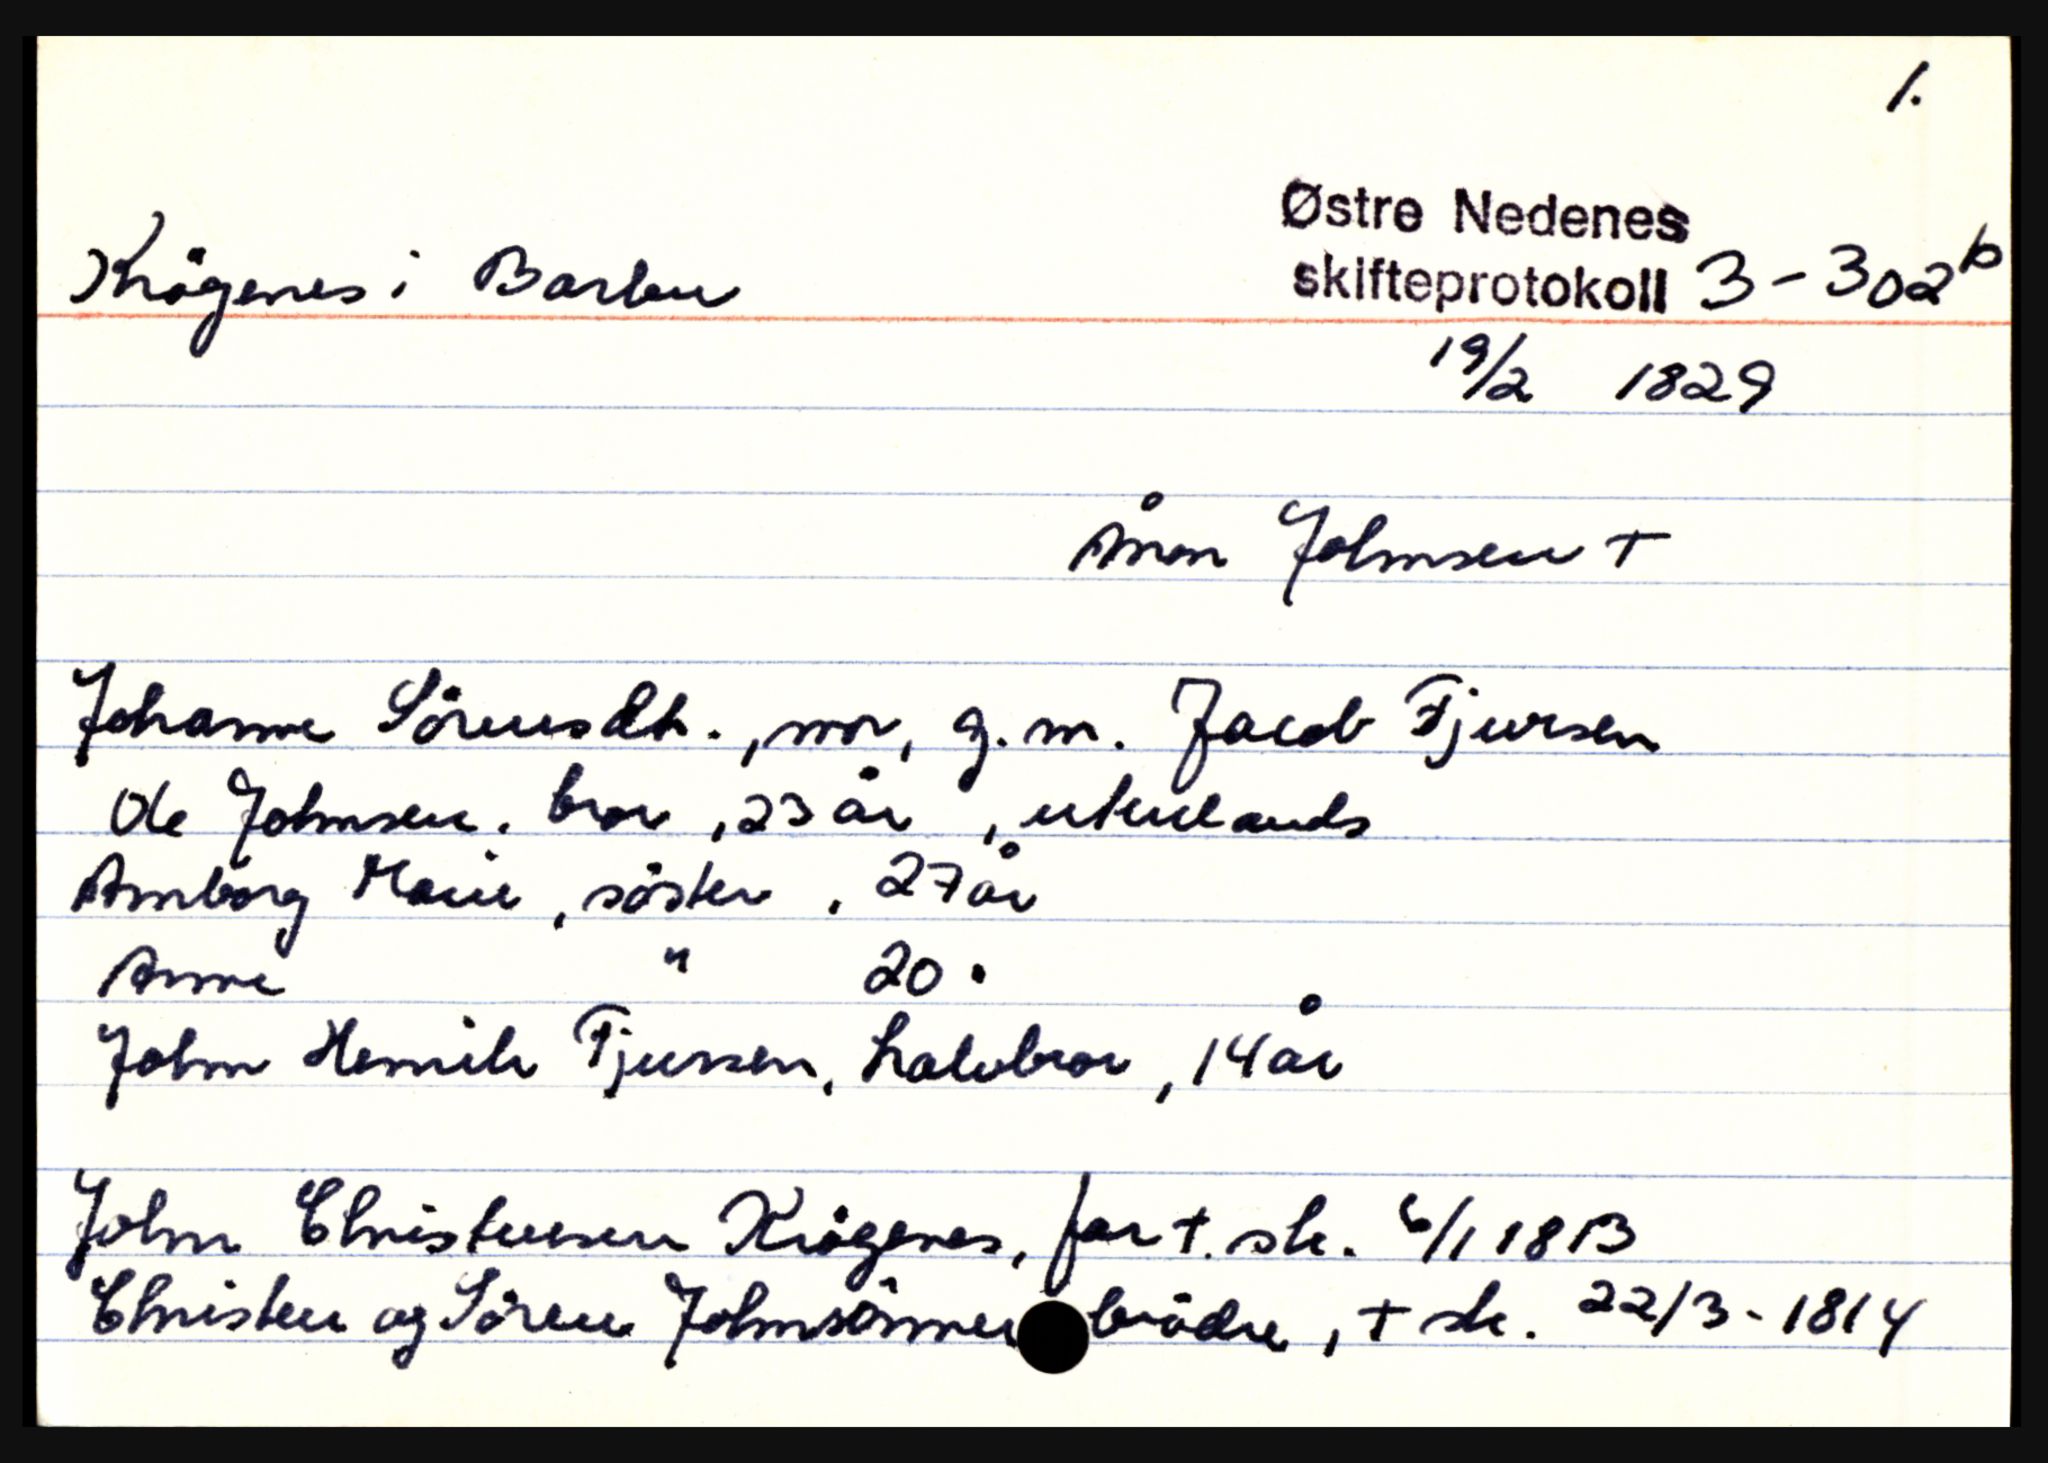 1.
Østre Nedenes
Krögenes i Barbu skifteprotokoll 3-302b
19/2 1829
Ånon Johnsen +
Johanne Sörensdt., mor, g.m. Jacob Fjursen
Ole Johnsen, bror, 23 år, utenlands
Amborg Marie, söster, 27 år
Anne " 20 "
John Henrik Fjursen, halvbror, 14 år
John Christensen Krögenes, far +. sk. 6/1 1813
Christen og Sören Johnsönner brödre, + sk. 22/3-1814